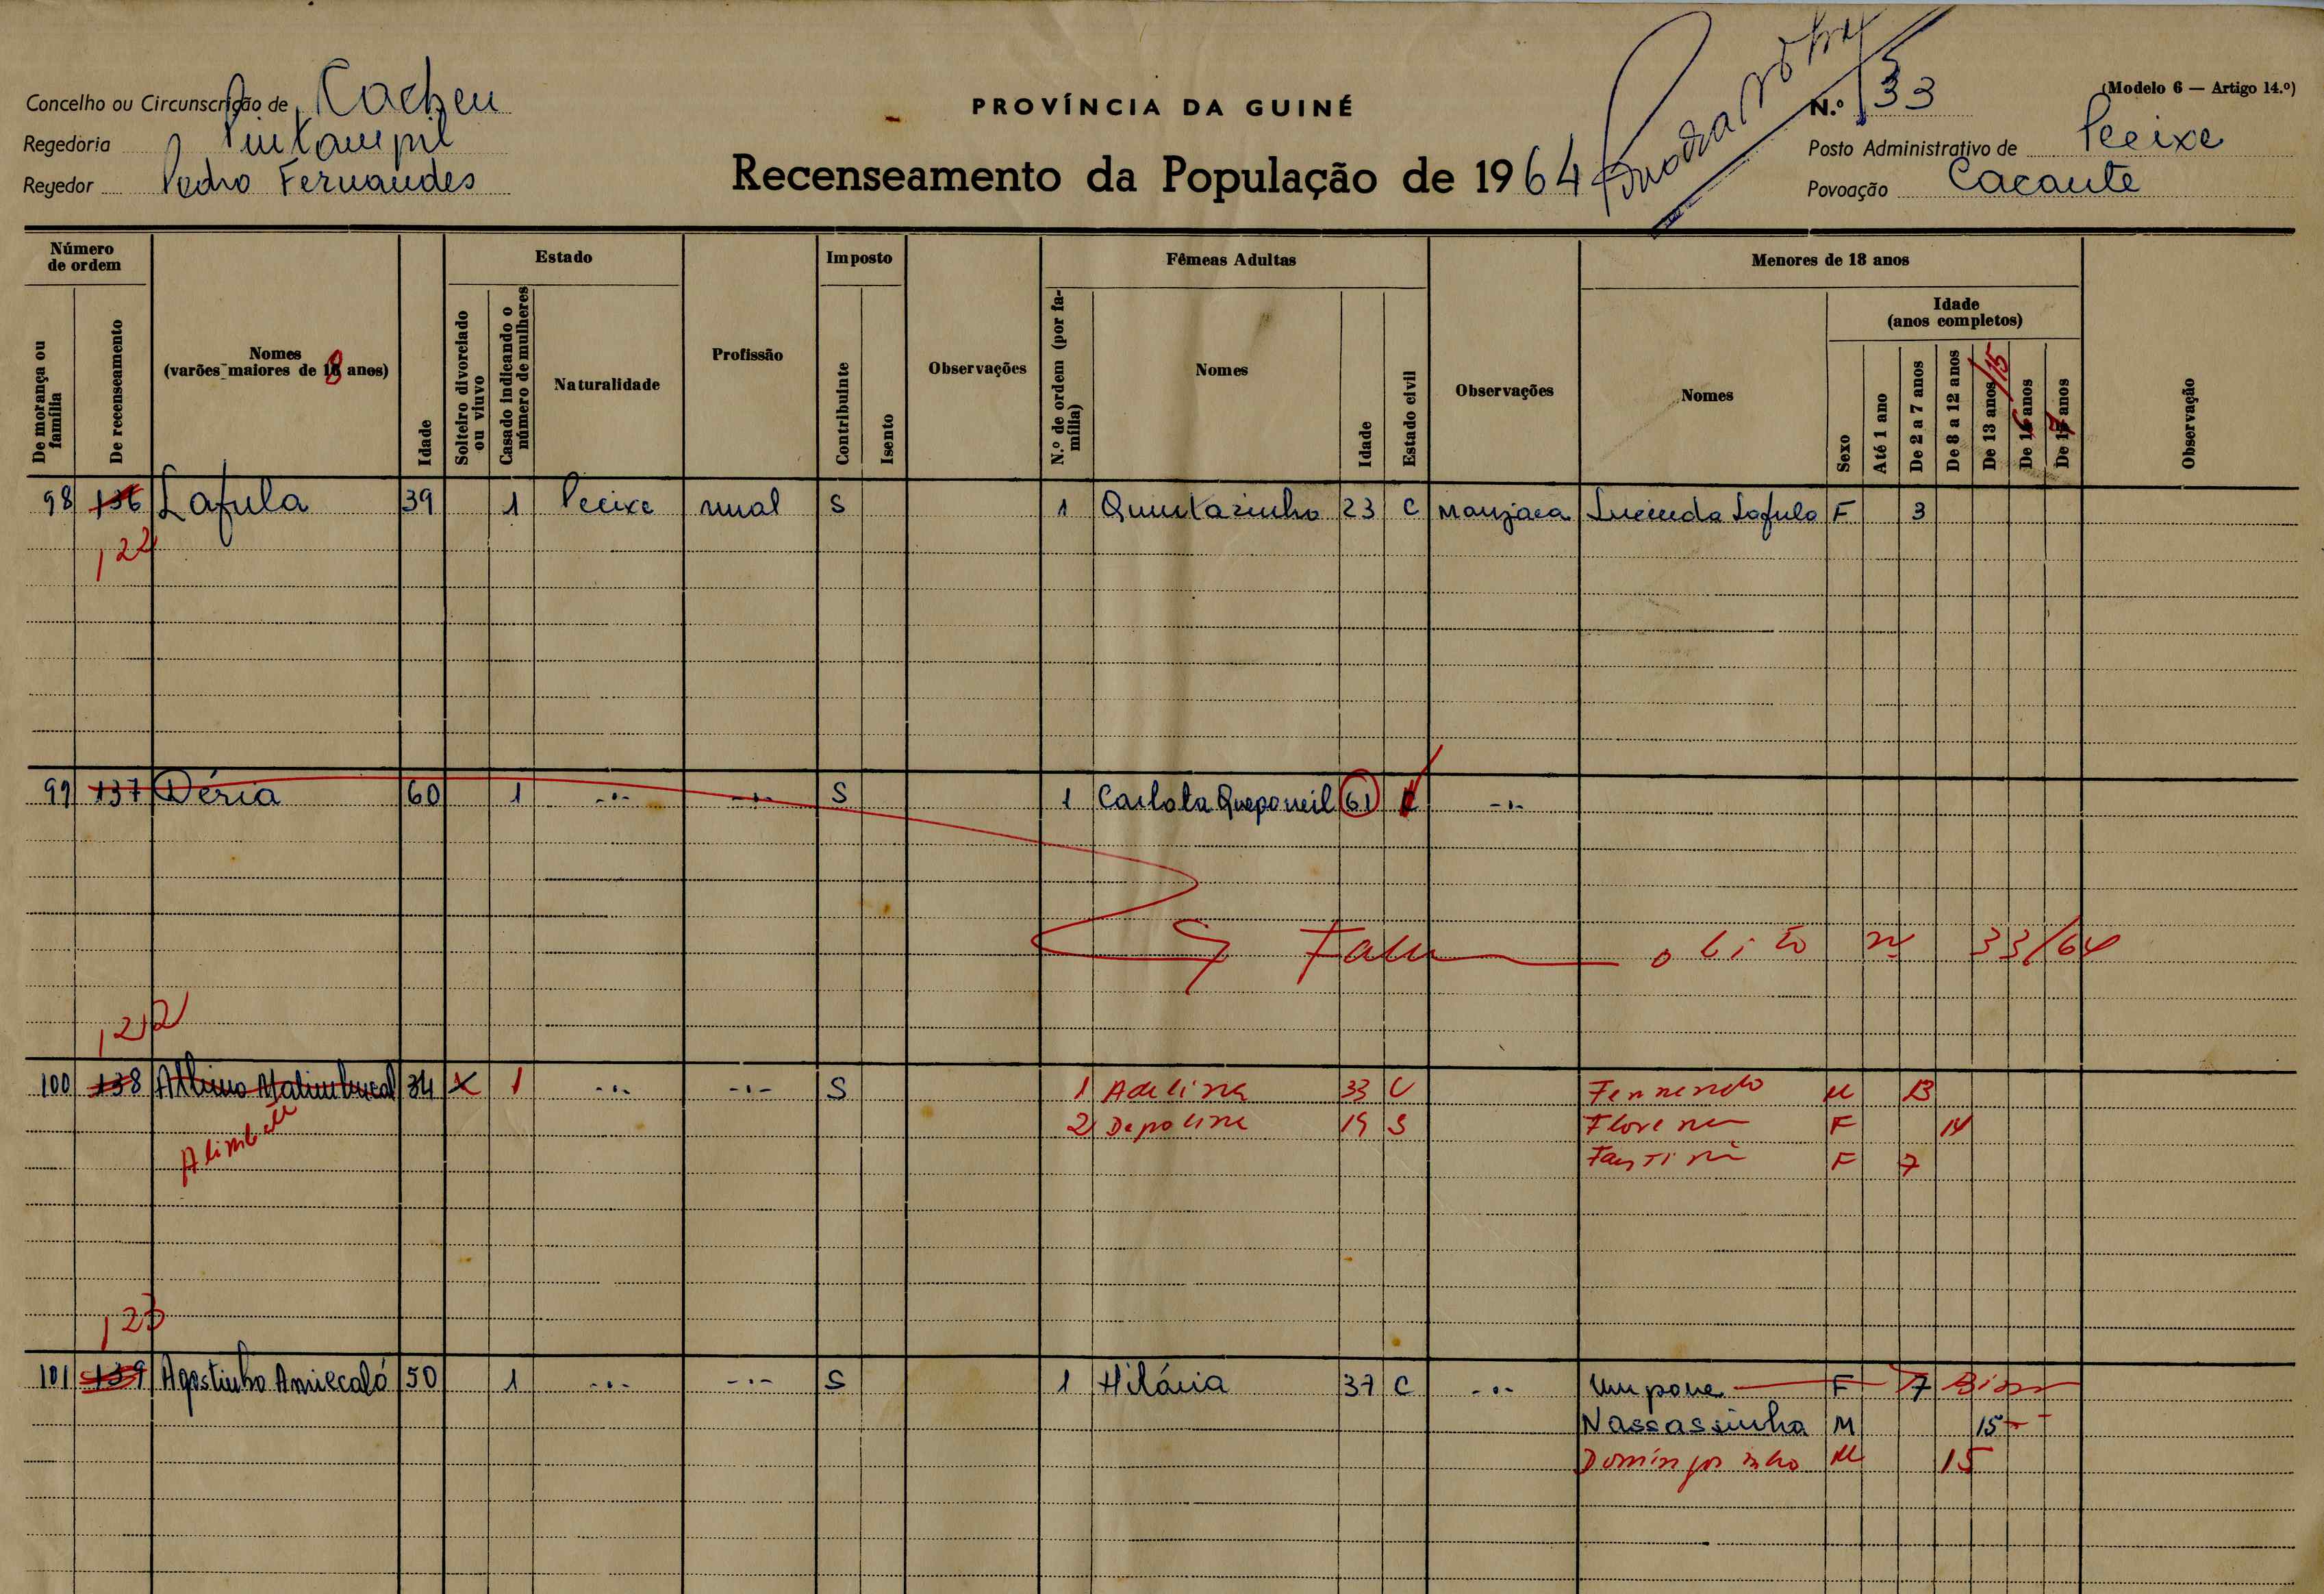 Concelho ou Circunscrição de Cacheu
Regedoria Pintampil
Regedor Pedro Fernandes
PROVÍNCIA DA GUINÉ
Recenseamento da População de 1964
(Modelo 6 — Artigo 14.º)
N.º 33
Posto Administrativo de Pecixe
Povoação Cacante
Número de ordem
De morança ou família
De recenseamento
Nomes
(varões maiores de 18 anos)
Idade
Estado
Solteiro divorciado ou viuvo
Casado indicando o número de mulheres
Naturalidade
Profissão
Imposto
Contribuinte
Isento
Observações
Fêmeas Adultas
N.º de ordem (por família)
Nomes
Idade
Estado civil
Observações
Menores de 18 anos
Nomes
Idade
(anos completos)
Sexo
Até 1 ano
De 2 a 7 anos
De 8 a 12 anos
De 13 anos /15
De 16 anos
De 17 anos
Observação
98 136 Lafula 39 1 Pecixe rural S 1 Quintazinho 23 C Manjaca Lucinda Lafula F 3
122
99 137 Déria 60 1 -.- -.- S 1 Carlota Queponeil 61 C -.-
Falec óbito nº 33/64
122
100 138 34 X 1 -.- -.- S 1 Adelina 33 C Fernando M 13
2 Depolina 19 S F 14
F 7
123
101 139 Agostinho Amiecaló 50 1 -.- -.- S 1 Hilária 37 C -.- Umpone F 7
Nassassinho M 15
Domingosinho M 15